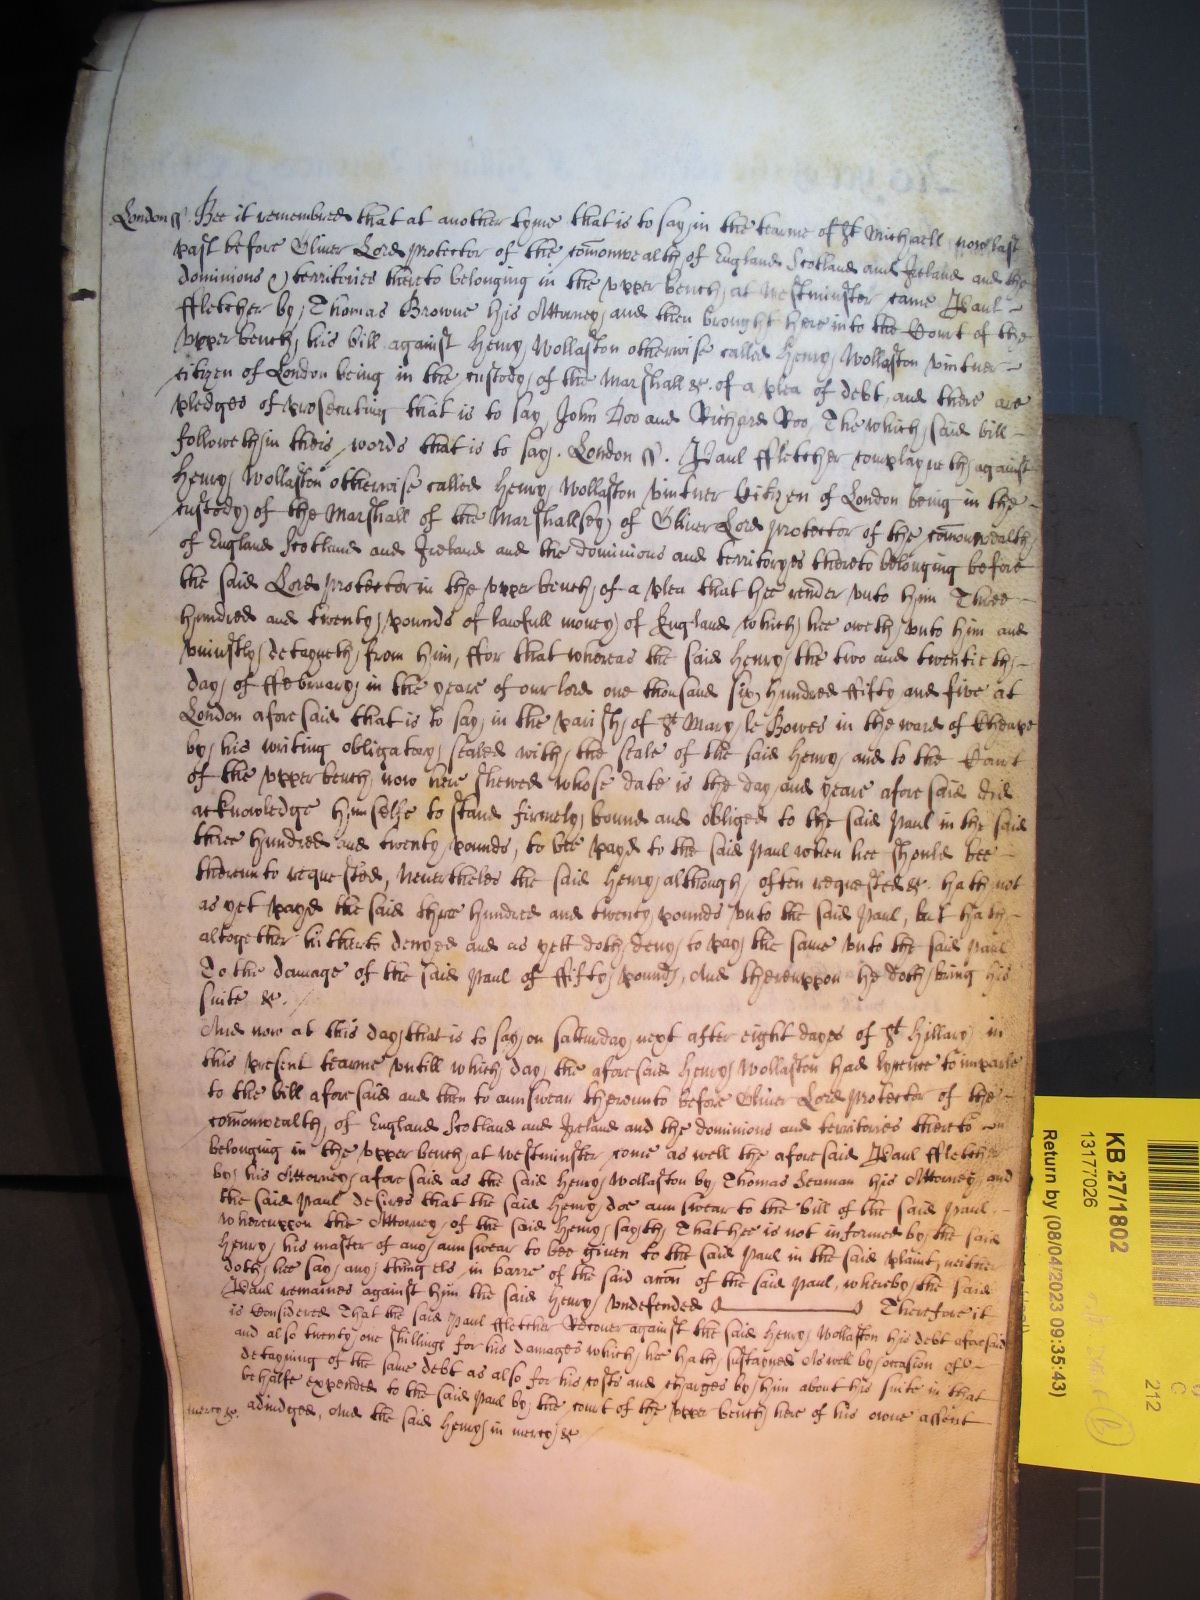 London ss. Bee it remembred that at another tyme that is to say in the tearme of St Michaell now last
past before Oliver Lord Protector of the comonwealth of England Scotland and Ireland and the
dominions & territories thereto belonging in the upper bench at Westminster came Paul
ffletcher by Thomas Browne his Attorney and then brought here into the Court of the
upper bench his bill against Henry Wollaston otherwise called Henry Wollaston vintner
citizen of London being in the custody of the Marshall &c. of a plea of debt, and there are
pledges of prosecuting that is to say John Doo and Richard Roo, The which said bill
followeth in theis words that is to say. London ss. Paul ffletcher complayneth against
Henry Wollaston otherwise called Henry Wollaston vintner Citizen of London being in the
custody of the Marshall of the Marshallsey of Oliver Lord Protector of the comonwealth
of England Scotland and Ireland and the dominions and territoryes thereto belonging before
the said Lord Protector in the upper bench of a plea that hee render unto him Three
hundred and twenty pounds of lawfull money of England which hee oweth unto him and
uniustly detayneth from him, ffor that whereas the said Henry the two and twentieth
day of ffebruary in the yeare of our lord one thousand six hundred ffifty and five at
London aforesaid that is to say in the parish of St Mary le Bowes in the ward of Cheape
by his writing obligatory sealed with the seale of the said Henry and to the Court
of the upper bench now here shewed whose date is the day and yeare aforesaid did
acknowledge himselfe to stand firmely bound and obliged to the said Paul in the said
three hundred and twenty pounds, to bee payd to the said Paul when hee should bee
thereunto requested, Neverthelesse the said Henry although often requested &c. hath not
as yet payd the said three hundred and twenty pounds unto the said Paul, but hath
altogether hitherto denyed and as yett doth deny to pay the same unto the said Paul
To the damage of the said Paul of ffifty pounds, And thereuppon he doth bring his
suite &c.
And now at this day that is to say on satturday next after eight dayes of St Hillary in
this present tearme untill which day the aforesaid Henry Wollaston had lycence to imparle
to the bill aforesaid and then to aunswear thereunto before Oliver Lord Protector of the
comonwealth of England Scotland and Ireland and the dominions and territories thereto
belonging in the upper bench at Westminster come as well the aforesaid Paul ffletcher
by his Attorney aforesaid as the said Henry Wollaston by Thomas Seaman his Attorney and
the said Paul desires that the said Henry doe aunswear to the bill of the said Paul.
Whereuppon the Attorney of the said Henry sayth That hee is not informed by the said
Henry his master of any aunswear to bee given to the said Paul in the said plaint, neither
doth hee say any thing els in barre of the said accon of the said Paul, whereby the said
Paul remaines against him the said Henry undefended Therefore it
is Considered That the said Paul ffletcher Recover against the said Henry Wollaston his debt aforesaid
and also twenty one shillings for his damages which hee hath sustayned As well by occasion of
detayning of the same debt as also for his costs and charges by him about his suite in that
behalfe expended to the said Paul by the court of the upper bench here of his owne assent
mercy &c. adiudged, And the said Henry in mercy &c.
KB 27/1802
13177026
Return by (08/04/2023 09:35:43)
C
212